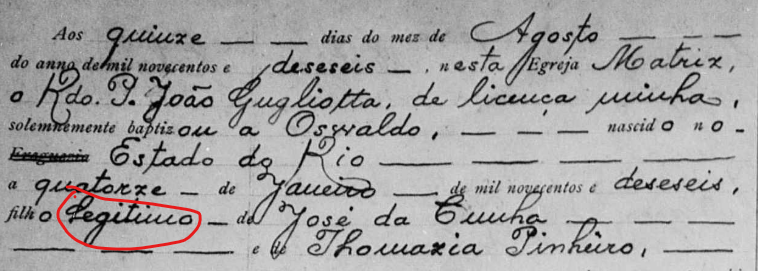 Aos quinze — — dias do mez de Agosto — — —
do anno de mil novecentos e deseseis —, nesta Egreja Matriz,
o Rdo. P. João Gugliotta, de licença minha,
solemnemente baptizou a Oswaldo, — — — nascido no -
Freguezia Estado do Rio — — — —
a quatorze — de Janeiro — de mil novecentos e deseseis,
filho legitimo — de José da Cunha — — —
— — — e de Thomazia Pinheiro, —